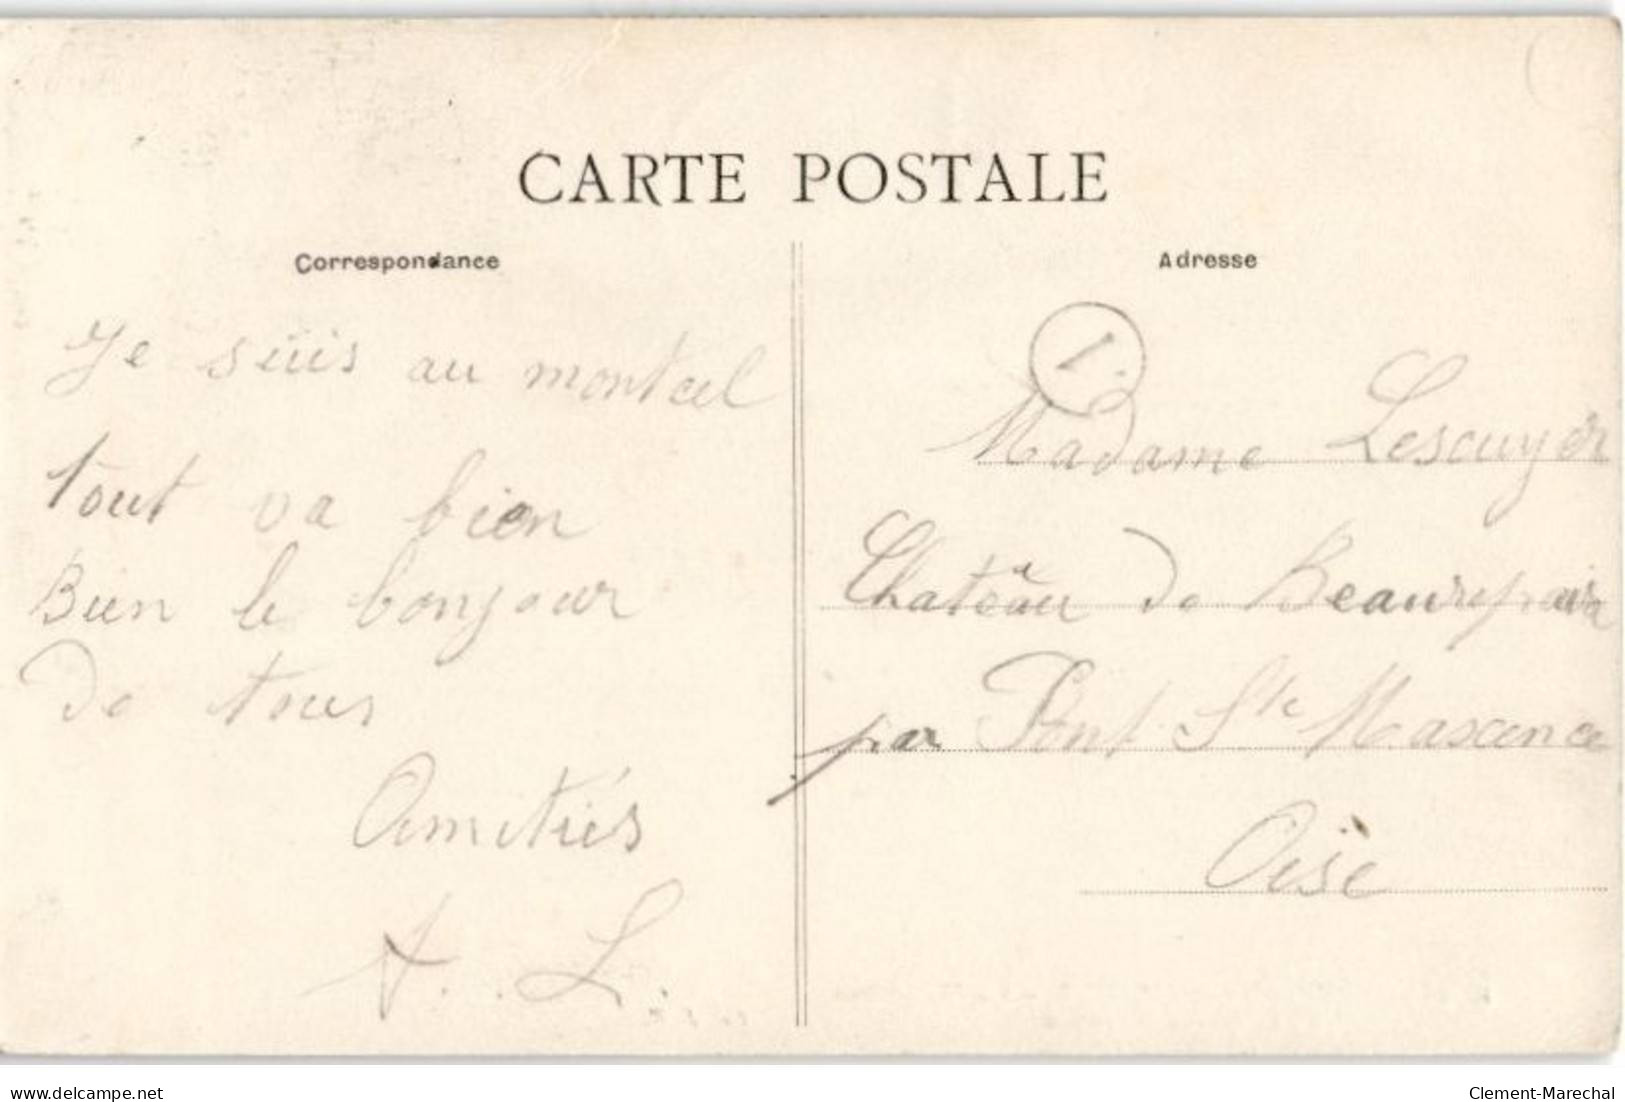 CARTE POSTALE
Correspondance
Je suis au montcel
tout va bien
Bien le bonjour
De tous
Amitiés
A. L.
Adresse
1.
Madame Lescuyer
Chateâu De Beaurepaire
par Pont Ste Maxence
Oise
delcampe.net
Clement-Marechal